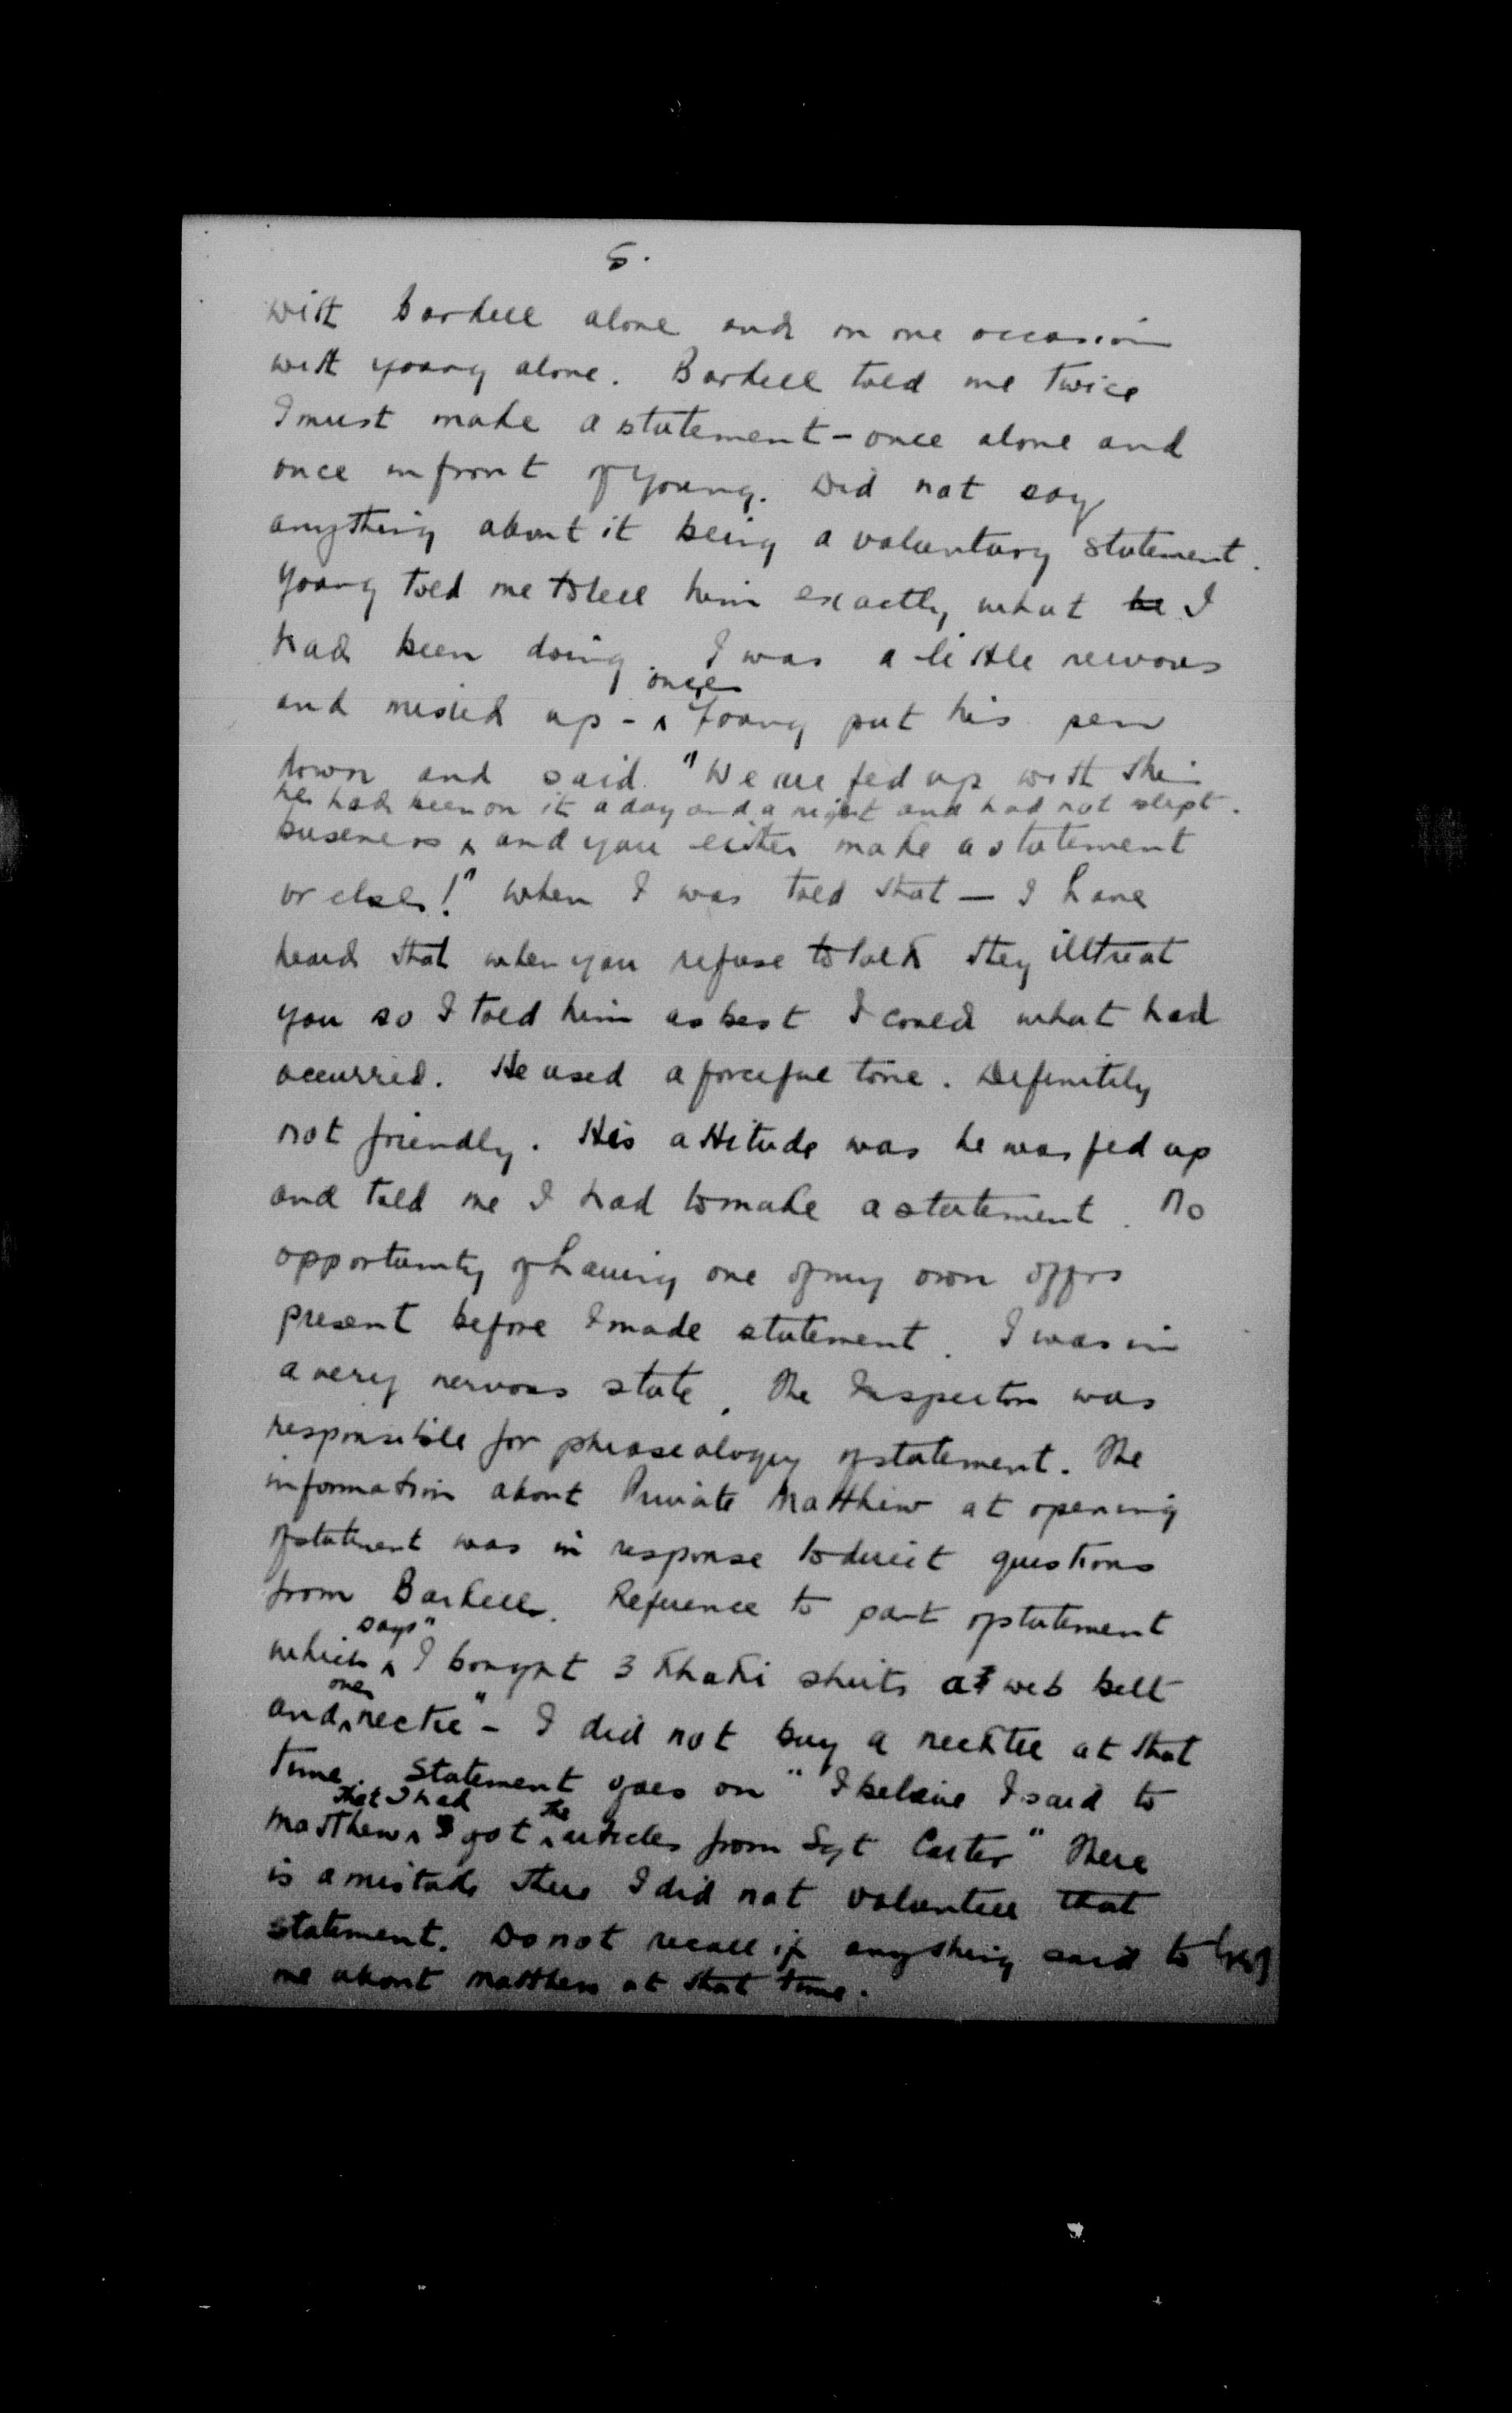 5.
with Barkell alone and on one occasion
with Young alone. Barkell told me twice
I must make a statement - once alone and
once in front of Young. Did not say
anything about it being a voluntary statement.
Young told me to tell him exactly what he I
had been doing. I was a little nervous
once
and mixed up - ^ Young put his pen
down and said "We are fed up with this
he had been on it a day and a night and had not slept.
business ^ and you either make a statement
or else!" When I was told that — I have
heard that when you refuse to talk they illtreat
you so I told him as best I could what had
occurred. He used a forceful tone. Definitely
not friendly. His attitude was he was fed up
and told me I had to make a statement. No
opportunity of having one of my own offrs
present before I made statement. I was in
a very nervous state. The Inspector was
responsible for phraseology of statement. The
information about Private Matthew at opening
of statement was in response to direct questions
from Barkell. Reference to part of statement
says "
which ^ I bought 3 Khaki shirts a web belt
one
and ^ necktie" - I did not buy a necktie at that
time. Statement goes on "I believe I said to
that I had the
Matthew ^ I got ^ articles from Sgt Carter" There
is a mistake there I did not volunteer that
statement. Do not recall if anything said to
me about Matthew at that time.